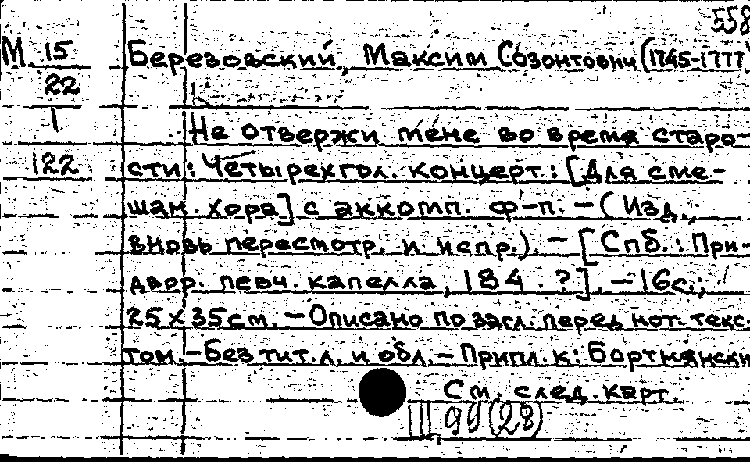 558
М 15 Березовский, Максим Созонтович (1745-1777
22
1 Не отвержи мене во время старо-
122 сти: Четырехгол. концерт.: [Для сме-
шан. хора] с аккомп. ф-п. — (Изд.,
вновь пересмотр. и испр.). — [Спб.: При-
дворр. певч. капелла, 184 . ?]. — 16с.;
25х35см. — Описано по загл. перед нот. текс-
том. — Без тит. л. и обл. — Припл. к: Бортнянски
См. след. карт.
III 99 (28)